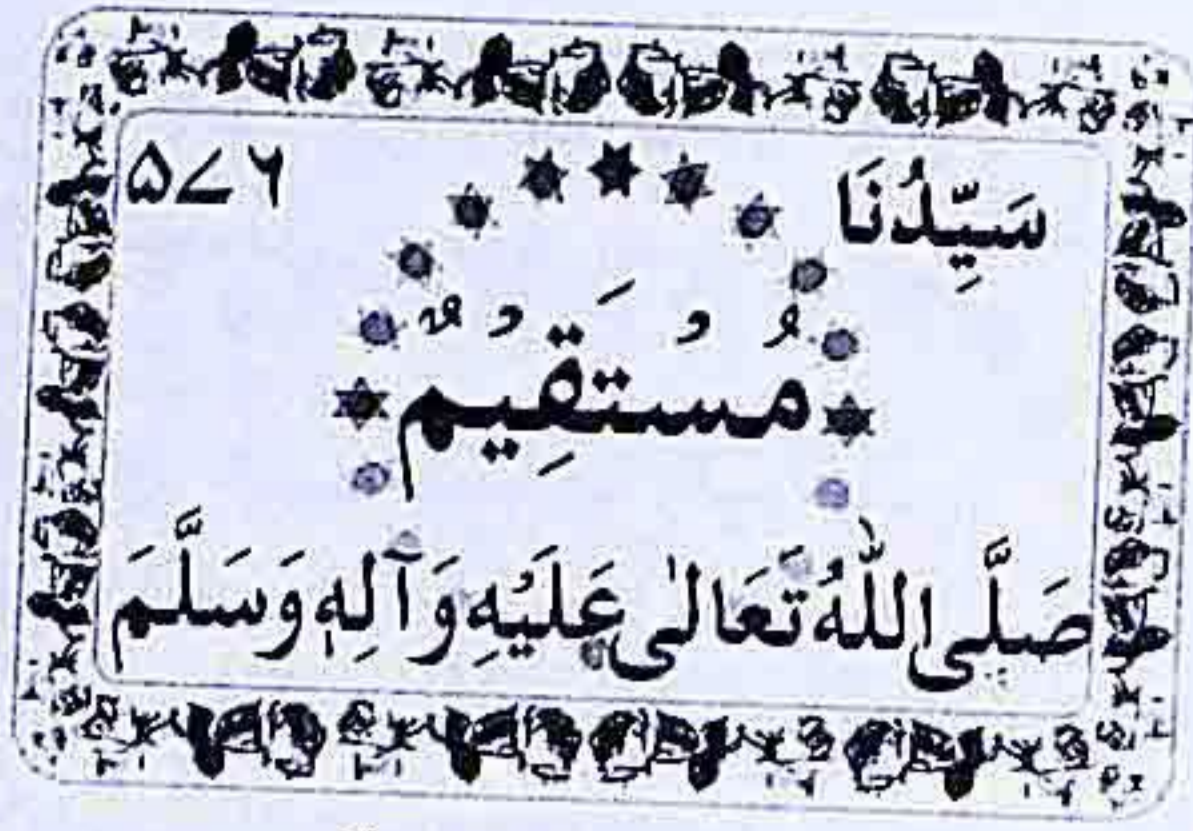 سَيِّدُنَا ۵۷۶
مُسْتَقِيْمٌ
صَلَّى اللّٰهُ تَعَالٰى عَلَيْهِ وَآلِهٖ وَسَلَّمَ